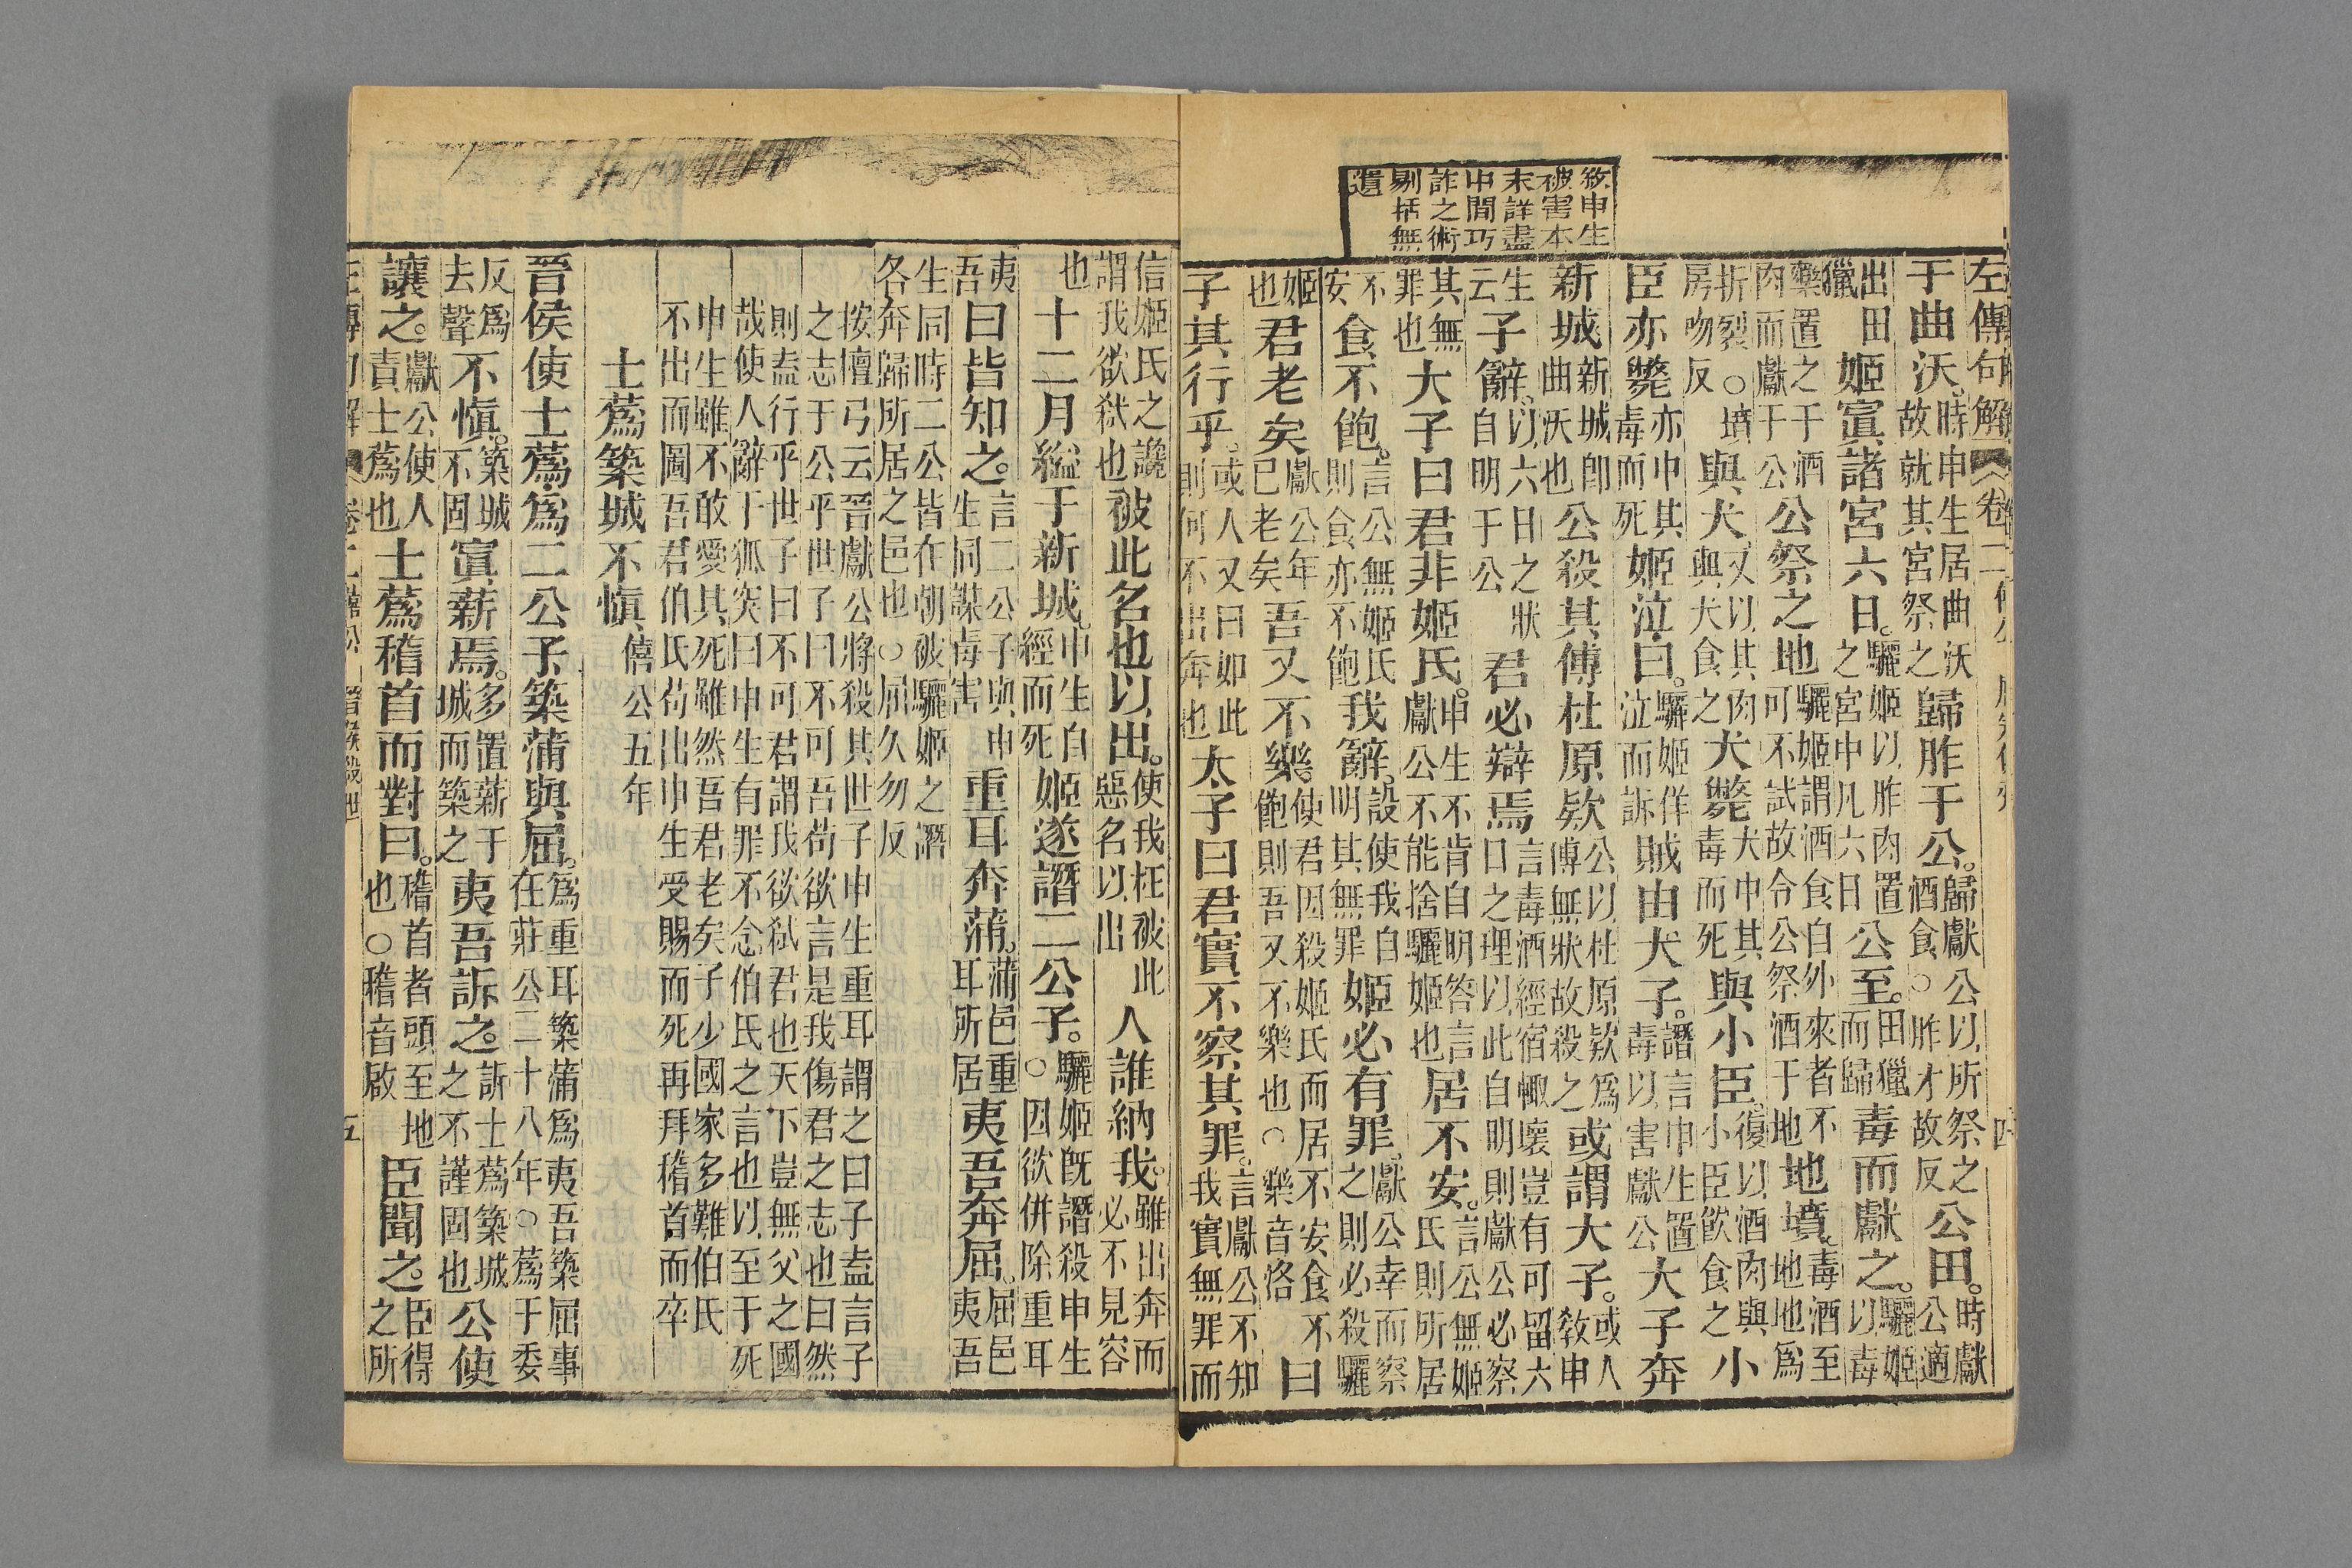 敘申生
被害本
末詳盡
中間巧
詐之術
剔括無
遺
左傳句解 卷二 四
于曲沃。時申生居曲沃故就其宮祭之歸胙于公。歸獻公以所祭之酒食○胙才故反公田。時獻公適
出田獵姬寘諸宮六日。驪姬以胙肉置之宮中凡六日公至。田獵而歸毒而獻之。驪姬以毒
藥置之于酒肉而獻于公公祭之地驪姬謂酒食自外來者不可不試故令公祭酒于地地墳。毒酒至地地爲
折裂○墳房吻反與犬。又以其肉與犬食之犬斃犬中其毒而死與小臣。復以酒肉與小臣飲食之小
臣亦斃亦中其毒而死姬泣曰。驪姬佯泣而訴賊由犬子。譖言申生置毒以害獻公大子奔
新城新城卽曲沃也公殺其傅杜原欵公以杜原欵爲傅無狀故殺之或謂大子。或人敎申
生云子辭。以六日之狀自明于公君必辯焉言毒酒經宿輙壞豈有可留六日之理以此自明則獻公必察
其無罪也大子曰君非姬氏。申生不肯自明答言獻公不能捨驪姬也居不安。言公無姬氏則所居
不安食不飽。言公無姬氏則食亦不飽我辭。設使我自明其無罪姬必有罪。獻公幸而察之則必殺驪
姬也君老矣獻公年已老矣吾又不樂。使君因殺姬氏而居不安食不飽則吾又不樂也○樂音洛曰
子其行乎。或人又曰如此則何不出奔也太子曰君實不察其罪。言獻公不知我實無罪而
信姬氏之讒謂我欲弒也被此名也以出。使我枉被此惡名以出人誰納我。雖出奔而必不見容
也十二月縊于新城。申生自經而死姬遂譖二公子。驪姬旣譖殺申生○因欲併除重耳
夷吾曰皆知之。言二公子與申生同謀毒害重耳奔蒲。蒲邑重耳所居夷吾奔屈。屈邑夷吾
生同時二公皆在朝被驪姬之譖各奔歸所居之邑也○屈久勿反
按檀弓云晉獻公將殺其世子申生重耳謂之曰子盍言子
之志于公乎世子曰不可吾苟欲言是我傷君之志也曰然
則盍行乎世子曰不可君謂我欲弒君也天下豈無父之國
哉使人辭于狐突曰申生有罪不念伯氏之言也以至于死
申生雖不敢愛其死雖然吾君老矣子少國家多難伯氏
不出而圖吾君伯氏苟出申生受賜而死再拜稽首而卒
士蔿築城不愼 僖公五年
晉侯使士蔿爲二公子築蒲與屈。爲重耳築蒲爲夷吾築屈事在莊公二十八年○蔿于委
反爲去聲不愼。築城不固寘薪焉。多置薪于城而築之夷吾訴之。訴士蔿築城之不謹固也公使
讓之。獻公使人責士蔿也士蔿稽首而對曰。稽首者頭至地也○稽音啟臣聞之。臣得之所
左傳句解 卷二 僖公 五